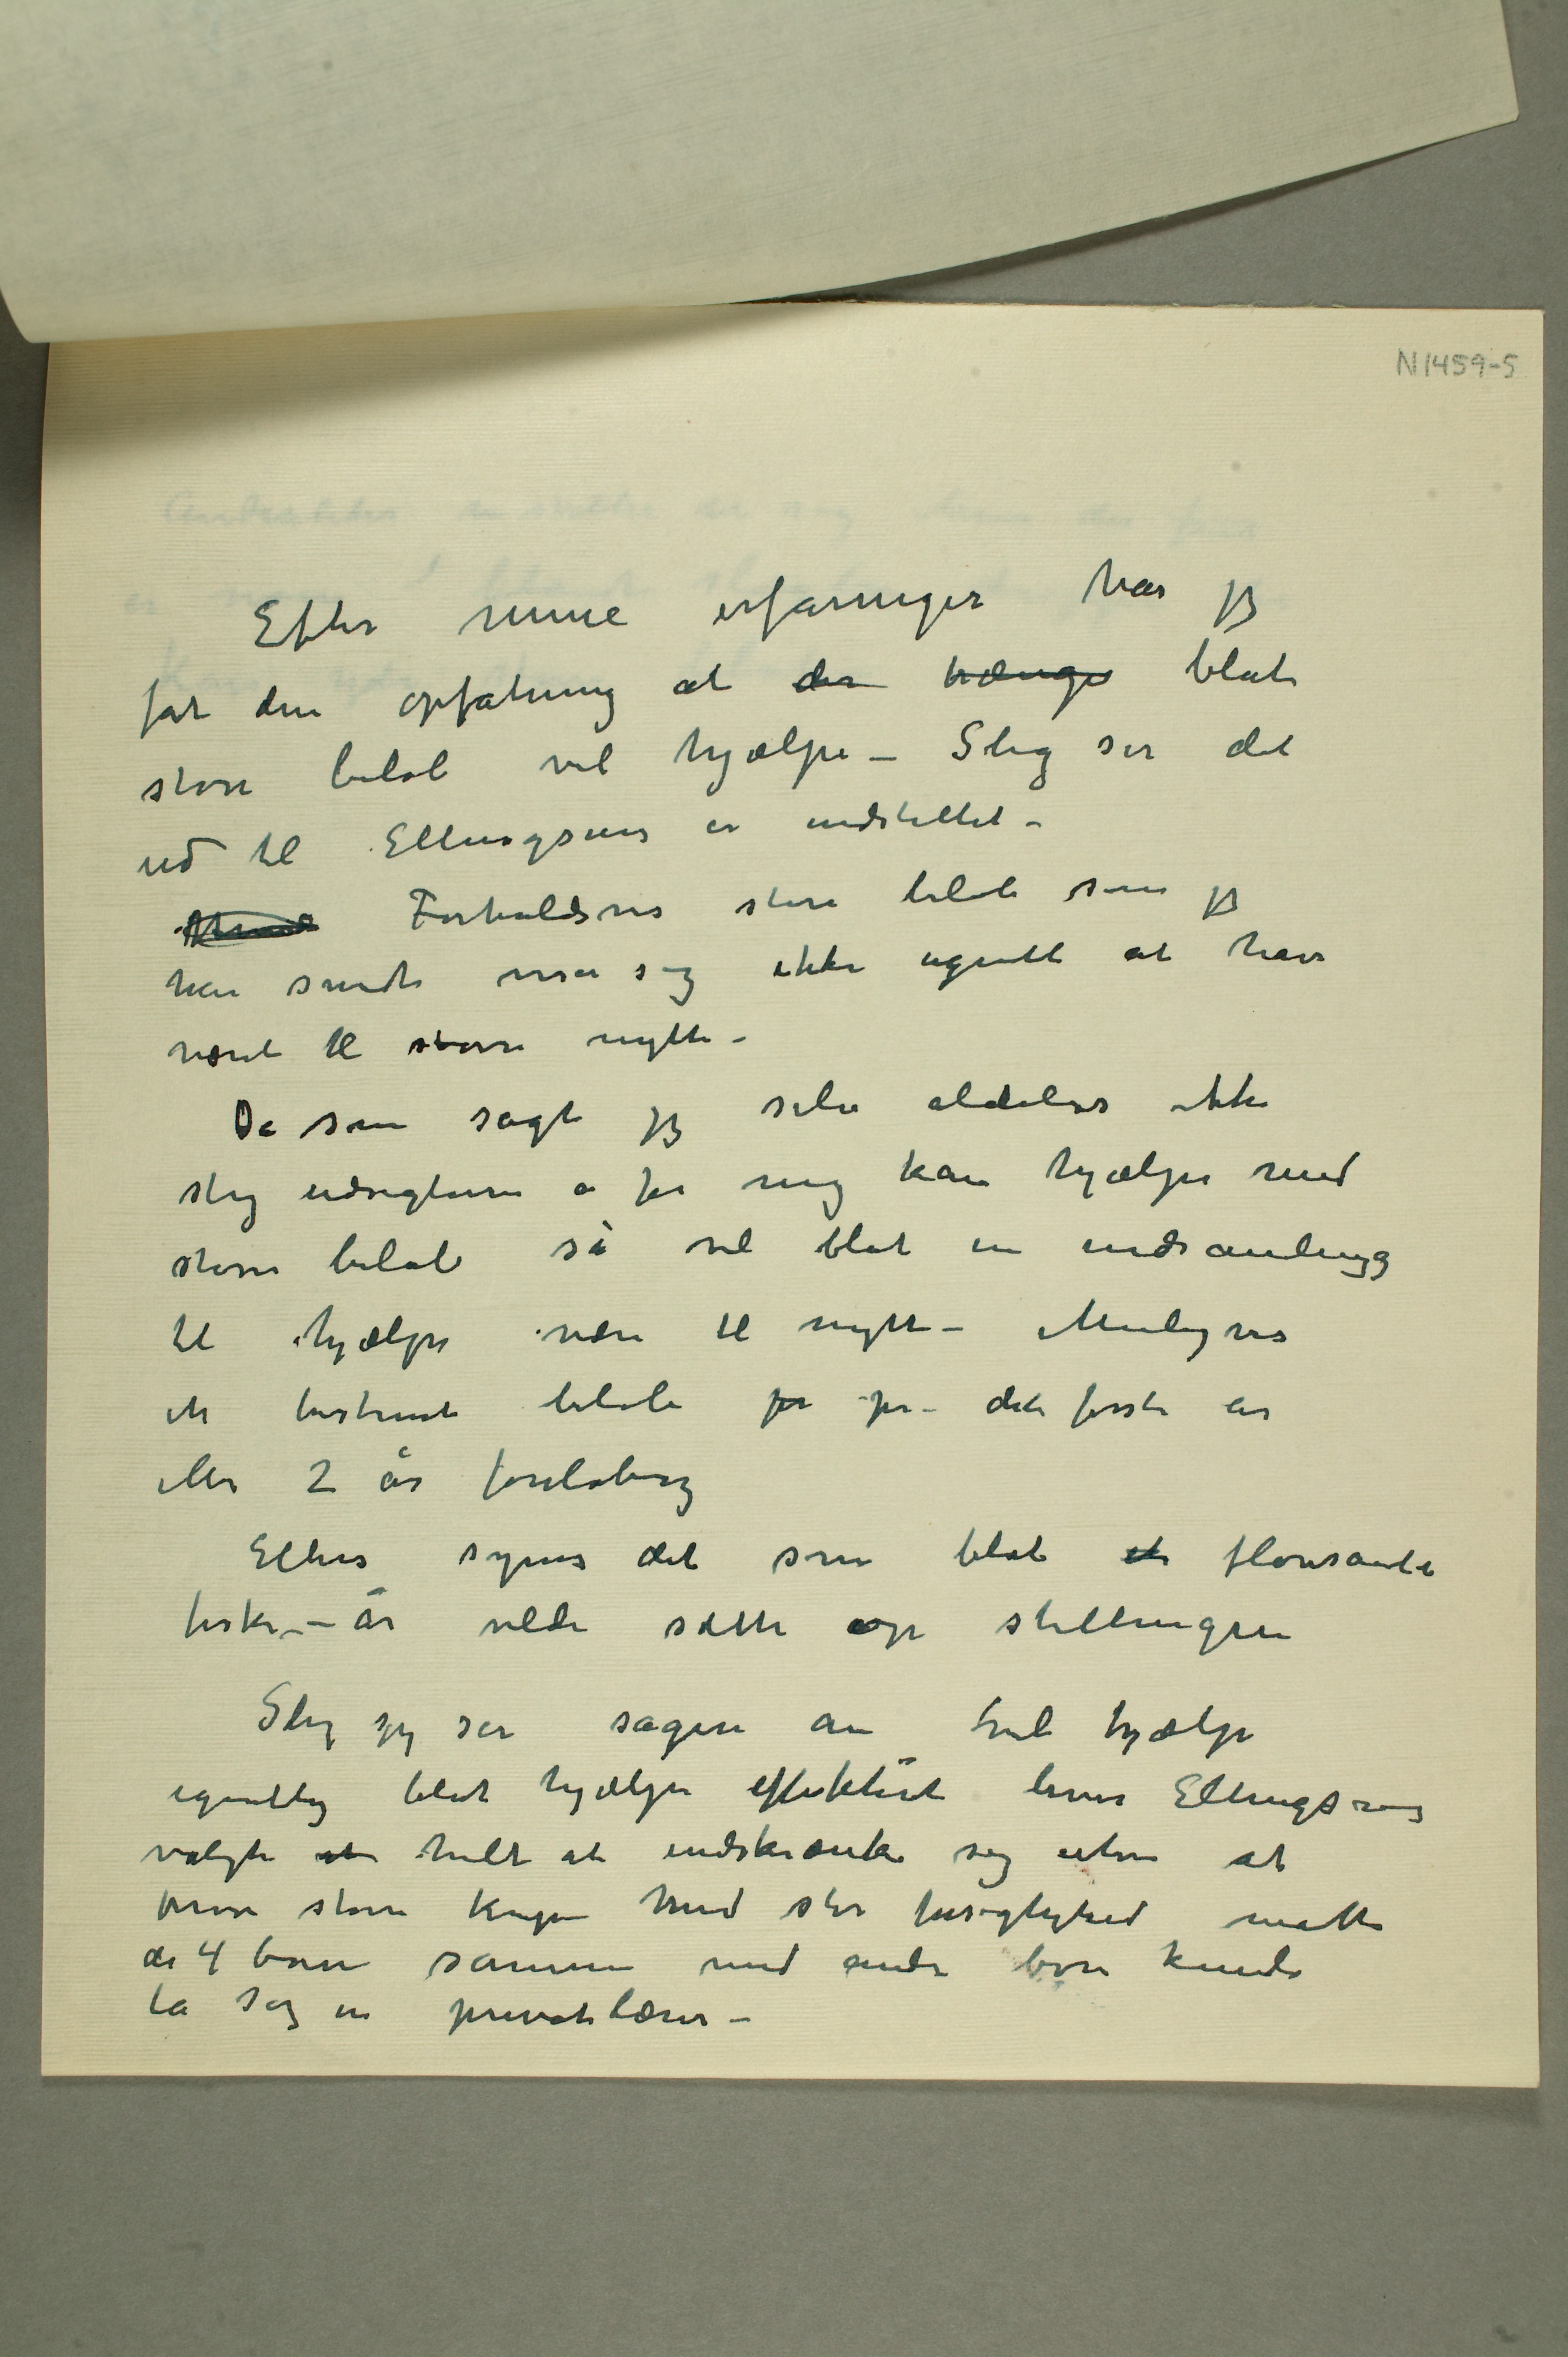 N1459-5
Efter mine erfaringer har jeg
fåt den opfatning at der trænges blot
større beløb vil hjælpe – Slig ser det
ud til Ellingsens er indstillet –
Forholdsvis store beløb som jeg
har sendt viser sig ikke egentlig at have
været til større nytte –
Da som sagt jeg selv aldeles ikke
slig udsigterne er for mig kan hjælpe med
større beløb så vil blot en indsamling
til hjælp være til nytte – Muligvis
et bestemt beløb for det første år
eller 2 år foreløbig
Ellers synes det som blot et flersomt
fiske – år vilde sætte op stillingen
Slig jeg ser sagen an vil hjælp
egentlig blot hjælpe effektivt hvis Ellingsens
valgte at helt at indskrænke sig uten at
prøve større Med stor forsigtighed måtte
de 4 børn sammen med andre børn kunde
ta sig en privatlærer –